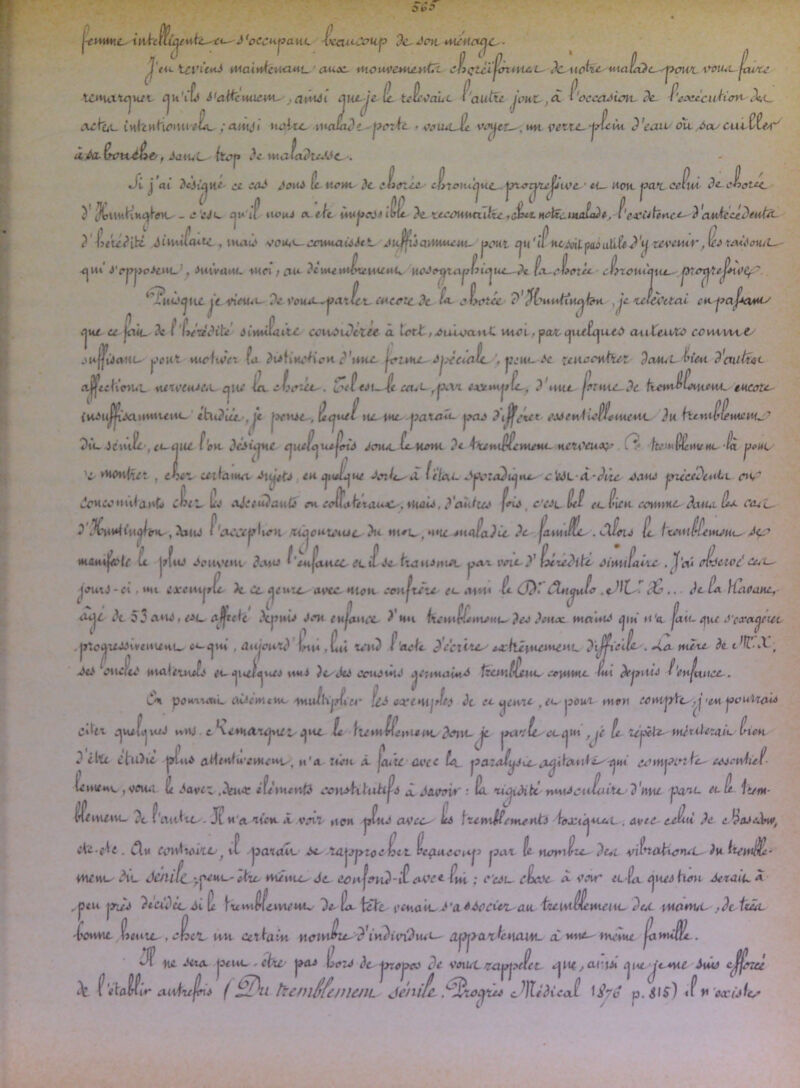 565
femme intelligente et s'occupant beaucoup de son ménage.
J'en reviens maintenant aux mouvements choréiformes de notre malade pour vous faire
remarquer qu'ils s'atténuent, ainsi que je le relevais l'autre jour, à l'occasion de l'exécution des
actes intentionnels ; ainsi notre malade porte, vous le voyez, un verre plein d'eau ou sa cuiller
à sa bouche, sans trop de maladresse.
Si j'ai désigné ce cas sous le nom de chorée chronique progressive et non par celui de chorée
d'Huntington - c'est qu'il nous a été impossible de reconnaître, chez notre malade, l'existence d'antécédents
d'hérédité similaire, mais vous connaissez suffisamment pour qu'il ne soit pas utile d'y revenir, les raisons
qui s'opposent, suivant moi, au démembrement nosographique de la chorée chronique progressive.
Puisque je viens de vous parler encore de la chorée d'Huntington, je relèverai en passant
que ce fait de l'hérédité similaire considérée à tort, suivant moi, par quelques auteurs comme
suffisant pour motiver la distinction d'une forme spéciale, peut se rencontrer dans bien d'autres
affections nerveuses que la chorée. Tel est le cas, par exemple, d'une forme de tremblement encore
insuffisamment étudiée, je pense, lequel ne me paraît pas différer essentiellement du tremblement
dit sénile, et que l'on désigne quelquefois sous le nom de tremblement nerveux. Ce tremblement-là peut
se montrer, chez certains sujets, en quelque sorte à l'état sporadique c'est-à-dire sans précédents ou
concomitants chez les ascendants ou collatéraux, mais, d'autres fois, c'est bel et bien comme dans les cas
d'Huntington, dans l'acception rigoureuse du mot, une maladie de famille. Alors le tremblement se
manifeste le plus souvent dans l'enfance et il se transmet par voie d'hérédité similaire. J'ai observé ces
jours-ci, un exemple de ce genre avec mon confrère et ami le Dr Angulo. Mr X... de la Havane,
âgé de 53 ans, est affecté depuis son enfance d'un tremblement des deux mains qui n'a fait que s'exagérer
progressivement et qui, aujourd'hui, lui rend l'acte d'écrire extrêmement difficile. La mère de Mr X,
ses oncles maternels et quelques uns de ses cousins germains tremblent comme lui depuis l'enfance.
On pourrait aisément multiplier les exemples de ce genre, et pour mon compte, j'en pourrais
citer quelques uns. Remarquez que le tremblement dont je parle et qui, je le répète mériterait bien
d'être étudié plus attentivement, n'a rien à faire avec la paralysie agitante qui comporte essentiel-
lement, vous le savez, deux éléments constitutifs à savoir : la rigidité musculaire d'une part et le trem-
blement de l'autre. Il n'a rien à voir non plus avec les tremblements toxiques, avec celui de Basedow,
etc. etc. Au contraire, il paraît se rapprocher beaucoup par le nombre des vibrations du tremble-
ment dit sénile, peut-être même se confond-il avec lui ; c'est chose à voir et la question serait à
peu près décidée si le tremblement de la tête venait s'associer au tremblement des mains, de très
bonne heure, chez un certain nombre d'individus appartenant à une même famille.
Il ne sera peut-être pas hors de propos de vous rappeler que, ainsi que je me suis efforcé
de l'établir autrefois (Du tremblement sénile. Progrès Médical 1876 p. 815) il n'existe